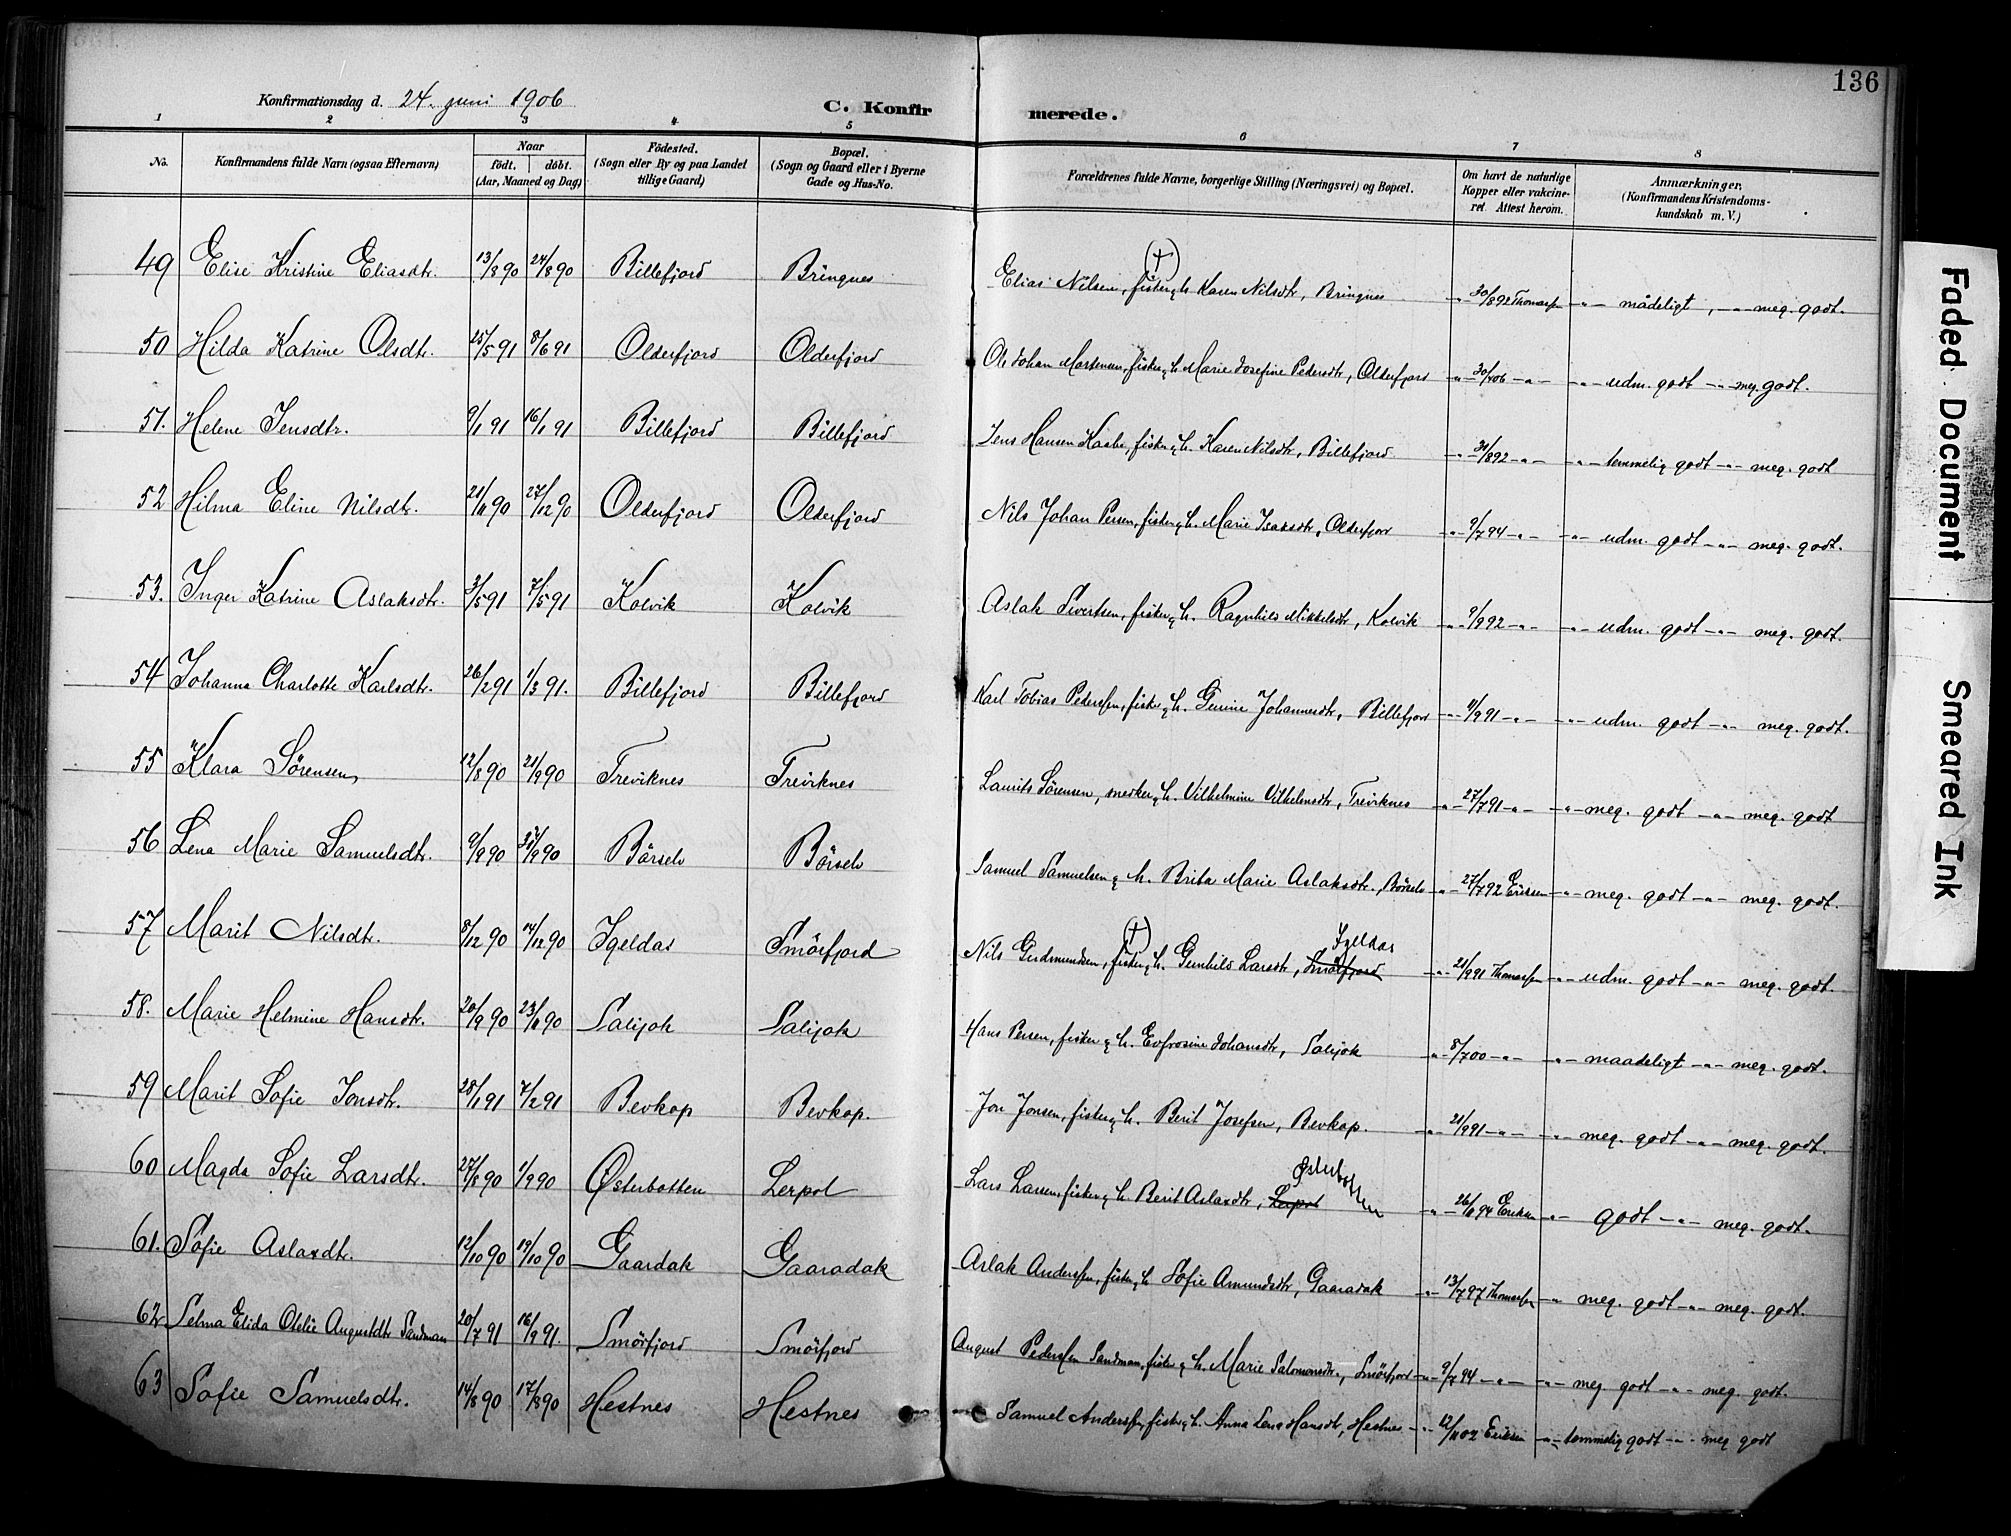 136
Konfirmationsdag d. 24. juni 1906
C. Konfirmerede.
1 2 3 4 5 6 7 8
No. Konfirmandens fulde Navn (ogsaa Efternavn) Naar födt. döbt. (Aar, Maaned og Dag) Födested. (Sogn eller By og paa Landet tillige Gaard) Bopæl. (Sogn og Gaard eller i Byerne Gade og Hus-No. Forældrenes fulde Navne, borgerlige Stilling (Næringsvei) og Bopæl. Om havt de naturlige Kopper eller vakcineret. Attest herom. Anmærkninger. (Konfirmandens Kristendomskundskab m. V.)
49 Elise Kristine Eliasdtr. 13/8 90 24/8 90 Billefjord Bringnes Elias Nilsen, (†) fisker, h. Karen Nilsdtr, Bringnes -"- 30/8 92 Thomassen -"- mådeligt, -"- meg. godt.
50 Hilda Katrine Olsdtr. 25/5 91 8/6 91 Olderfjord Olderfjord Ole Johan Mortensen, fisker, h. Marie Josefine Pedersdtr, Olderfjord -"- 30/4 06 -"- -"- udm. godt -"- meg. godt.
51. Helene Jensdtr. 9/1 91 16/1 91 Billefjord Billefjord Jens Hansen, fisker, h. Karen Nilsdtr, Billefjord -"- 31/8 92 -"- -"- temmelig godt -"- meg. godt
52 Hilma Eline Nilsdtr. 21/11 90 27/12 90 Olderfjord Olderfjord Nils Johan Persen, fisker, h. Marie Isaksdtr, Olderfjord -"- 9/7 94 -"- -"- udm. godt -"- meg. godt.
53. Inger Katrine Aslaksdtr. 3/5 91 7/5 91 Kolvik Kolvik Aslak Sivertsen, fisker, h. Ragnhild Mikkelsdtr, Kolvik -"- 9/9 92 -"- -"- udm. godt -"- meg. godt.
54 Johanna Charlotte Karlsdtr. 26/2 91 1/3 91. Billefjord Billefjord Karl Tobias Pedersen, fisker, h. Johannesdtr, Billefjord -"- 11/9 91 -"- -"- udm. godt -"- meg. godt.
55 Klara Sörensen 12/8 90 21/9 90 Treviknes Treviknes Laurits Sörensen, snedker, h. Vilhelmine Vilhelmsdtr, Treviknes -"- 27/7 91 -"- -"- meg. godt -"- meg. godt
56 Lena Marie Samuelsdtr. 9/9 90 /9 90 Börselv Börselv Samuel Samuelsen, h. Brita Marie Aslaksdtr., Börselv -"- 27/7 92 Eriksen -"- meg. godt -"- meg. godt.
57 Marit Nilsdtr. 8/12 90 14/12 90 Igeldas Smörfjord Nils Gudmundsen, (†) fisker, h. Gunhild Larsdtr, Smörfjord Igeldas -"- 21/9 91 Thomassen -"- udm. godt -"- meg. godt.
58. Marie Helmine Hansdtr. 20/9 90 23/11 90 Salijok Salijok Hans Persen, fisker, h. Eufrosine Johansdtr, Salijok -"- 8/7 00 -"- -"- maadeligt -"- meg. godt.
59 Marit Sofie Jonsdtr. 28/1 91 7/2 91 Bevkop Bevkop. Jon Jonsen, fisker, h. Berit Josefsen, Bevkop. -"- 21/9 91 -"- -"- meg. godt -"- meg. godt.
60 Magda Sofie Larsdtr. 27/8 90 1/9 90 Østerbotten Lerpol Lars Larsen, fisker, h. Berit Aslaxdtr, Lerpol Østerbotten -"- 26/11 94 Eriksen -"- godt -"- meg. godt.
61. Sofie Aslaxdtr. 12/10 90 19/10 90 Gaardak Gaaradak Aslak Anderssen, fisker, h. Sofie Amundsdtr, Gaaradak -"- 13/7 97 Thomassen -"- meg. godt -"- meg. godt.
62 Selma Elida Otelie Augustdtr Sandman 20/7 91 16/9 91. Smörfjord Smörfjord August Pedersen Sandman, fisker, h. Marie Salomonsdtr., Smörfjord -"- 9/7 94 -"- -"- meg. godt -"- meg. godt.
63 Sofie Samuelsdtr. 14/8 90 17/8 90 Hestnes Hestnes Samuel Andersen, fisker, h. Anna Lena Hansdtr, Hestnes -"- 12/11 02 Eriksen -"- temmelig godt -"- meg. godt
Faded Document
Smeared Ink